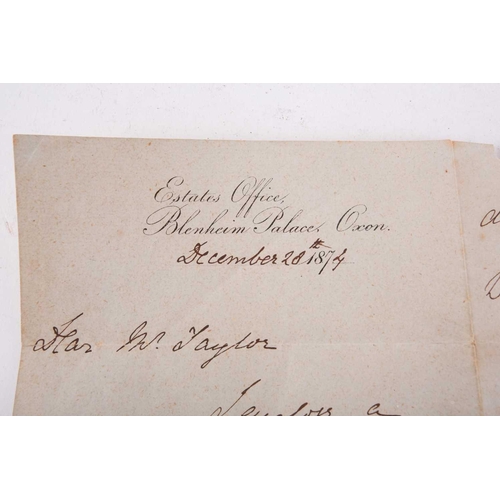 Estates Office,
Blenheim Palace, Oxon.
December 28th 1874
Dear Mr. Taylor
I enclose a